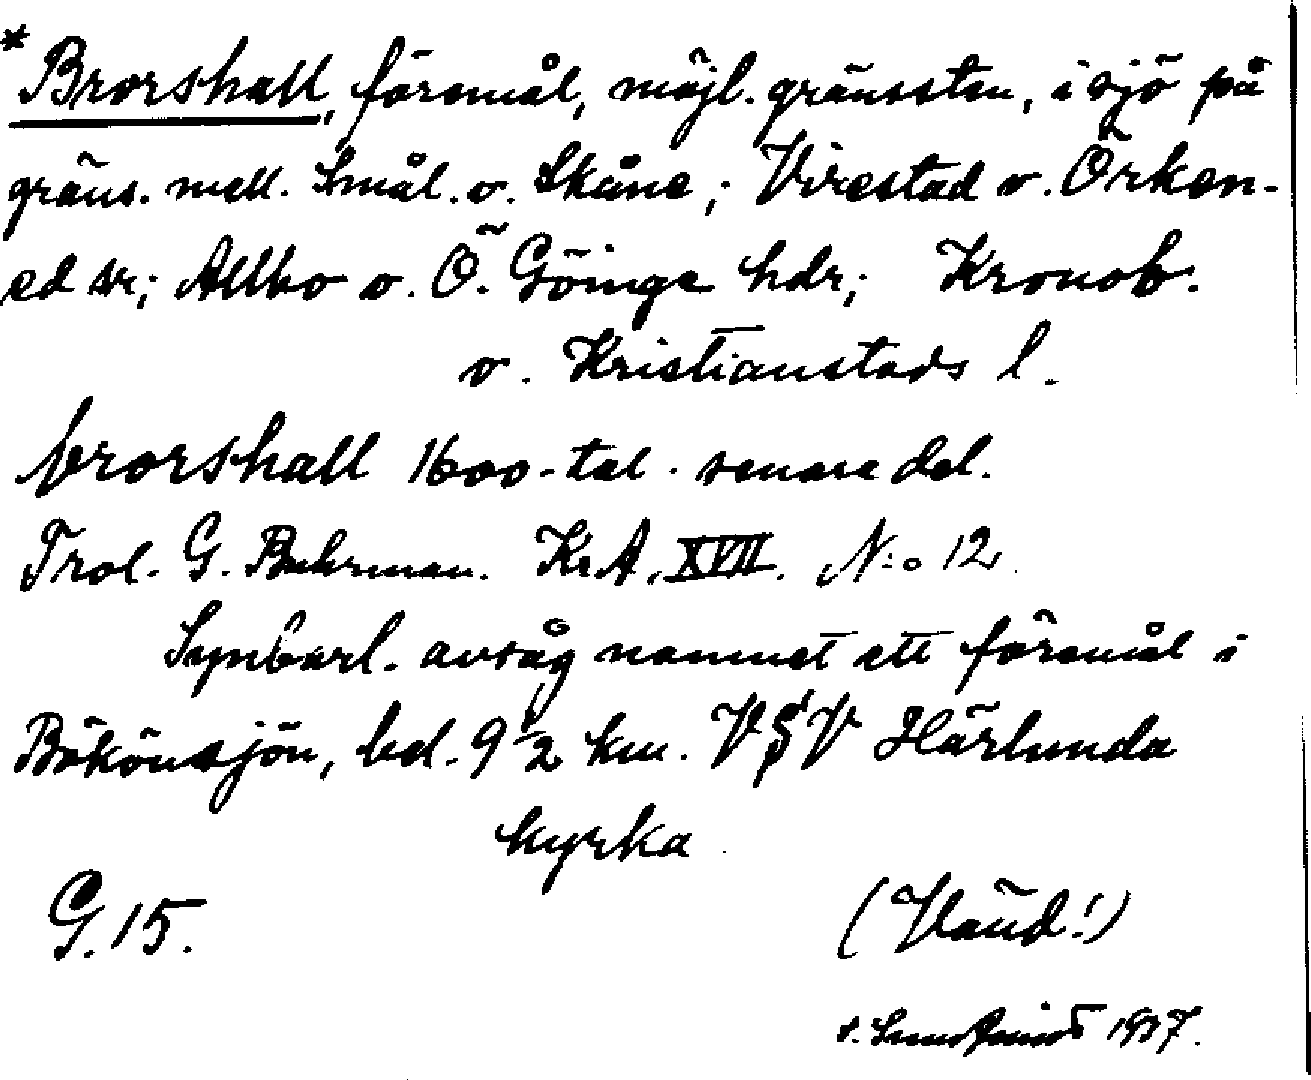 *Brorshall, föremål, möjl. gränssten, i sjö på
gräns. mell. Smål. o. Skåne; Virestad o. Örken-
ed sr; Allbo o. Ö. Göinge hdr; Kronob.
o. Kristianstads l.
brorshall 1600-tal. senare del.
Trol. G. Buhrman. Kr.A. XVII. N:o 12.
Synbarl. avsåg namnet ett föremål i
Bökönsjön, bel. 9 1/2 km. VSV Härlunda
kyrka.
G. 15. (Vänd!)
1937.